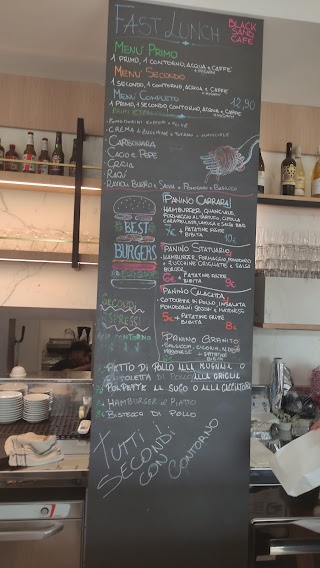 FAST LUNCH
BLACK
SAND
CAFE'
MENU' PRIMO
1 PRIMO, 1 CONTORNO, ACQUA E CAFFE'
MENU' SECONDO
1 SECONDO, 1 CONTORNO, ACQUA E CAFFE'
MENU' COMPLETO
1 PRIMO, 1 SECONDO CONTORNO, ACQUA E CAFFE'
12,90
CARBONARA
CACIO E PEPE
GRICIA
RAGU'
RAVIOLI BURRO E SALVIA O POMODORO E BASILICO
BEST
BURGERS
PANINO CARRARA
HAMBURGER, GUANCIALE,
FORMAGGIO AL TARTUFO, CIPOLLA
CARAMELLATA, RUCOLA E SALSA BBQ
7€ + PATATINE FRITTE
BIBITA 10€
PANINO STATUARIO
HAMBURGER, FORMAGGIO, POMODORO
ZUCCHINE GRIGLIATE E SALSA
BURGER
6€ + PATATINE FRITTE
BIBITA 9€
PANINO CALACATTA
COTOLETTA DI POLLO, INSALATA
POMODORINI SECCHI E MAIONESE
5€ + PATATINE FRITTE
BIBITA 8€
SECONDI
ESPRESSI
CON CONTORNO
PANINO GRANITO
SALSICCIA, CICORIA,
MAIONESE + PATATINE
FRITTE
BIBITA
PETTO DI POLLO ALLA MUGNAIA O
COTOLETTA DI POLLO ALLA GRIGLIA
POLPETTE AL SUGO O ALLA CACCIATORA
HAMBURGER AL PIATTO
BISTECCA DI POLLO
TUTTI I
SECONDI
CON
CONTORNO